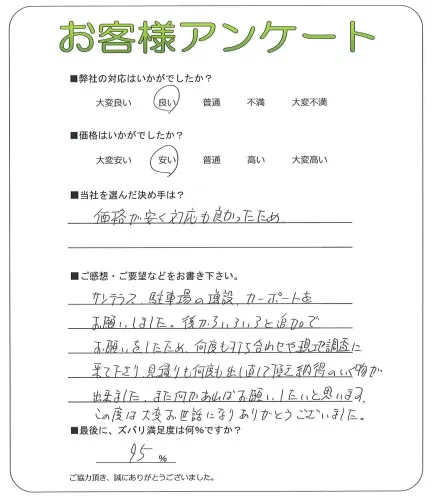 お客様アンケート
■弊社の対応はいかがでしたか？
大変良い 良い 普通 不満 大変不満
■価格はいかがでしたか？
大変安い 安い 普通 高い 大変高い
■当社を選んだ決め手は？
価格が安く対応も良かったため
■ご感想・ご要望などをお書き下さい。
サンテラス、駐車場の増設、カーポートを
お願いしました。後からいろいろと追加で
お願いをしたため、何度も打ち合わせや現地調査に
来て下さり、見積りも何度も出し直して頂き納得のいく物が
出来ました。また何かあればお願いしたいと思います。
この度は大変お世話になりありがとうございました。
■最後に、ズバリ満足度は何％ですか？
95 %
ご協力頂き、誠にありがとうございました。